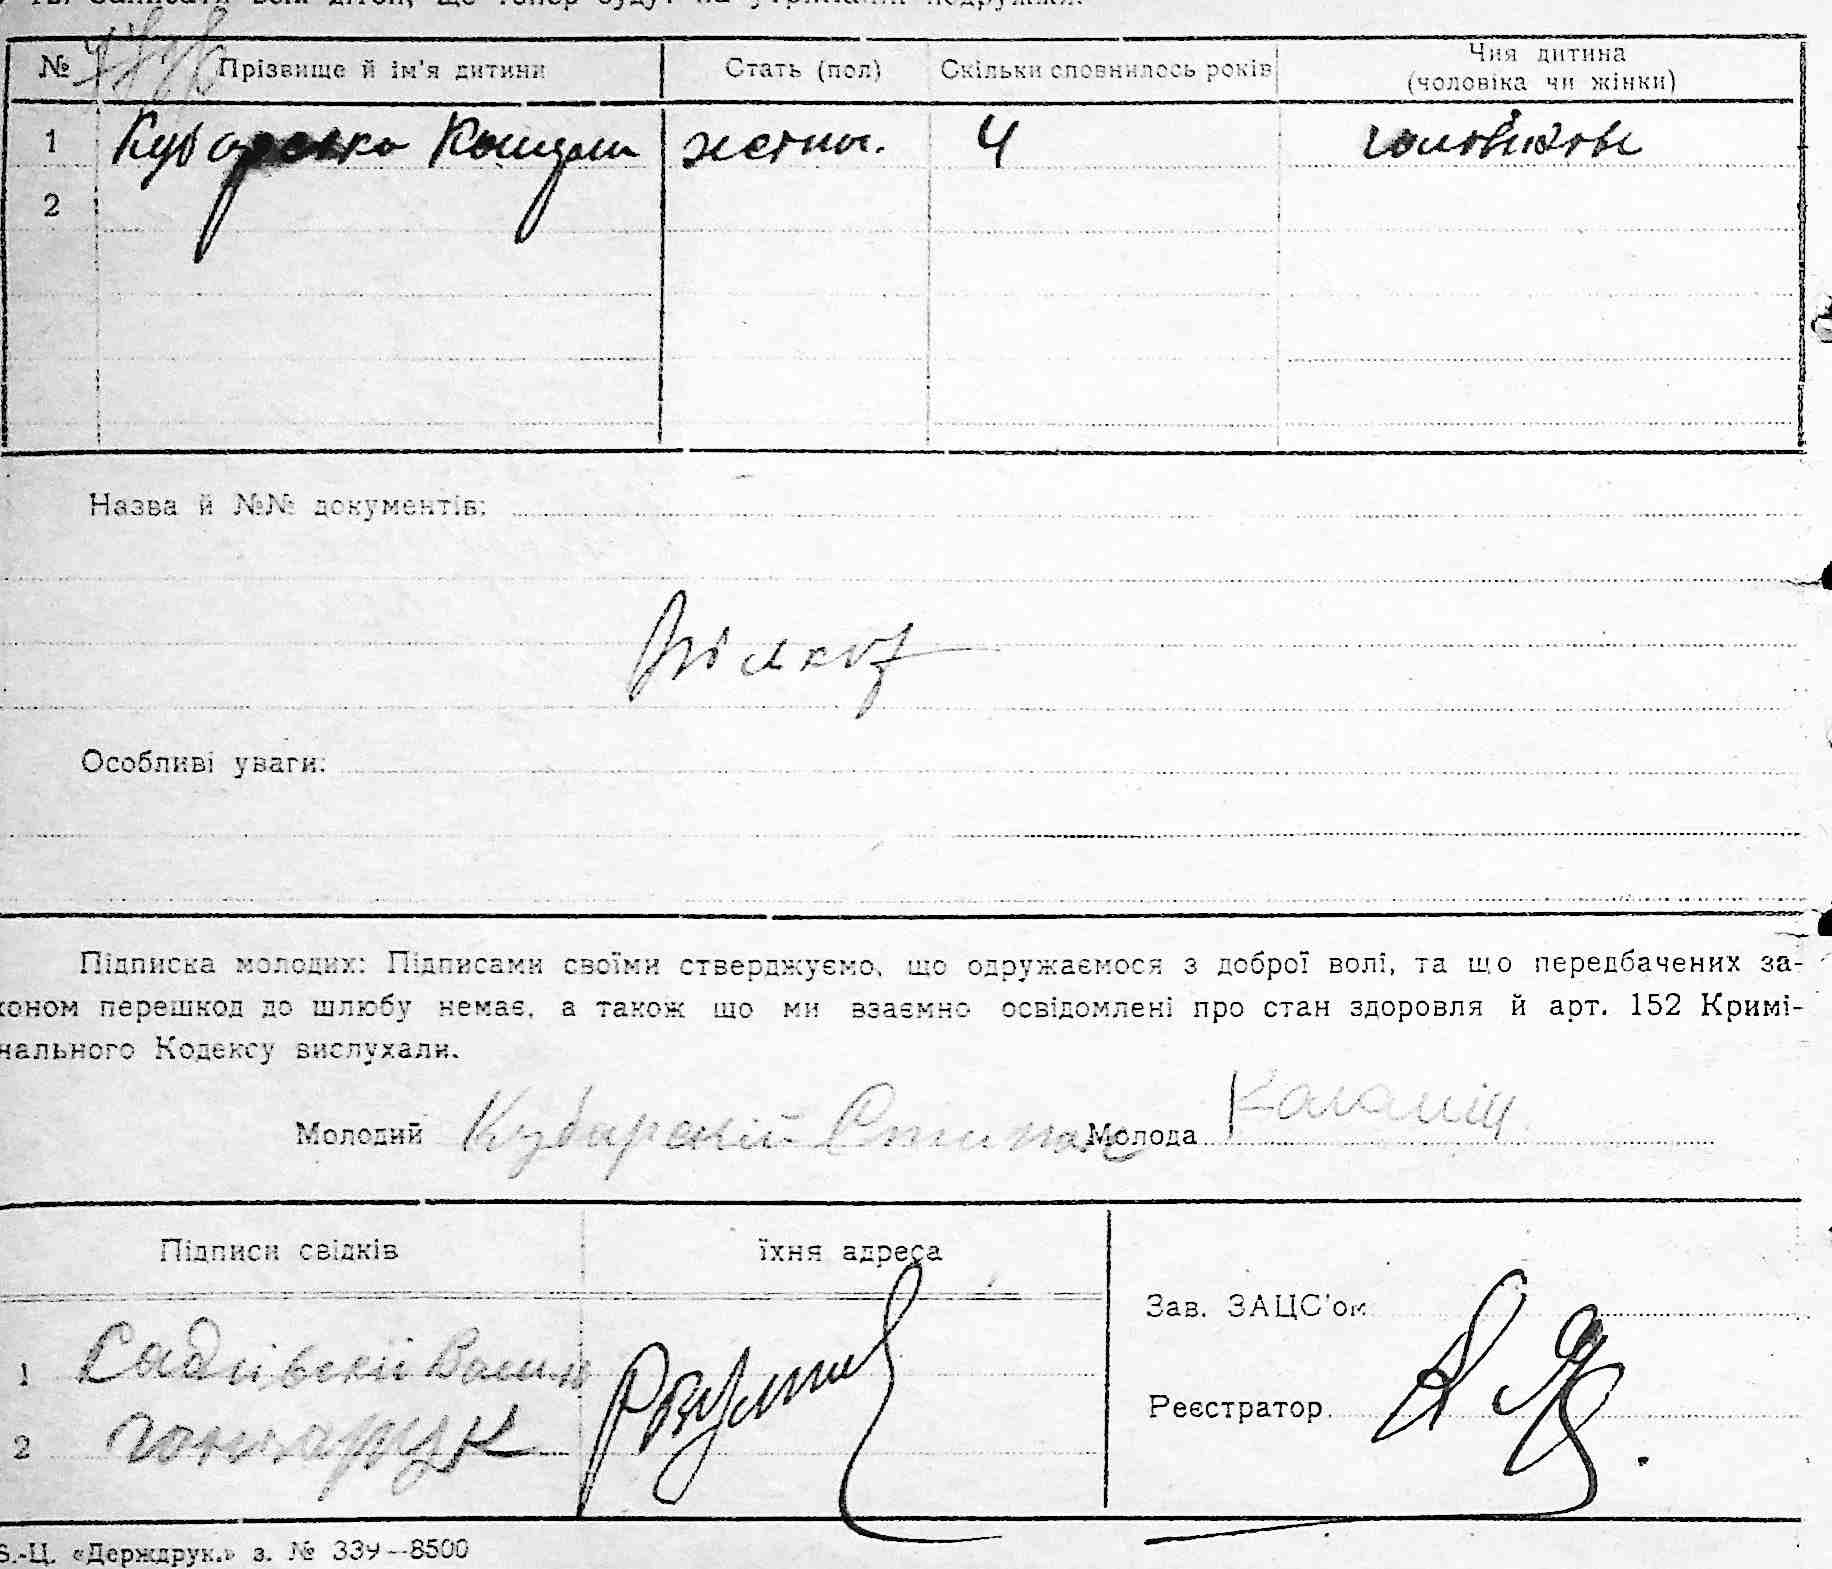 № Прізвище й ім'я дитини Стать (пол) Скільки сповнилось років Чия дитина (чоловіка чи жінки)
1 Кубарська жетны. 4
2
Назва й №№ документів:
Особливі уваги:
Підписка молодих: Підписами своїми стверджуємо, що одружаємося з доброї волі, та що передбачених за-
коном перешкод до шлюбу немає, а також що ми взаємно освідомлені про стан здоровля й арт. 152 Кримі-
нального Кодексу вислухали.
Молодий Кубарский Молода
Підписи свідків їхня адреса
Зав. ЗАЦС'ом
1
Реєстратор
2 гончарук
S.-Ц. «Держдрук.» з. № 339—8500